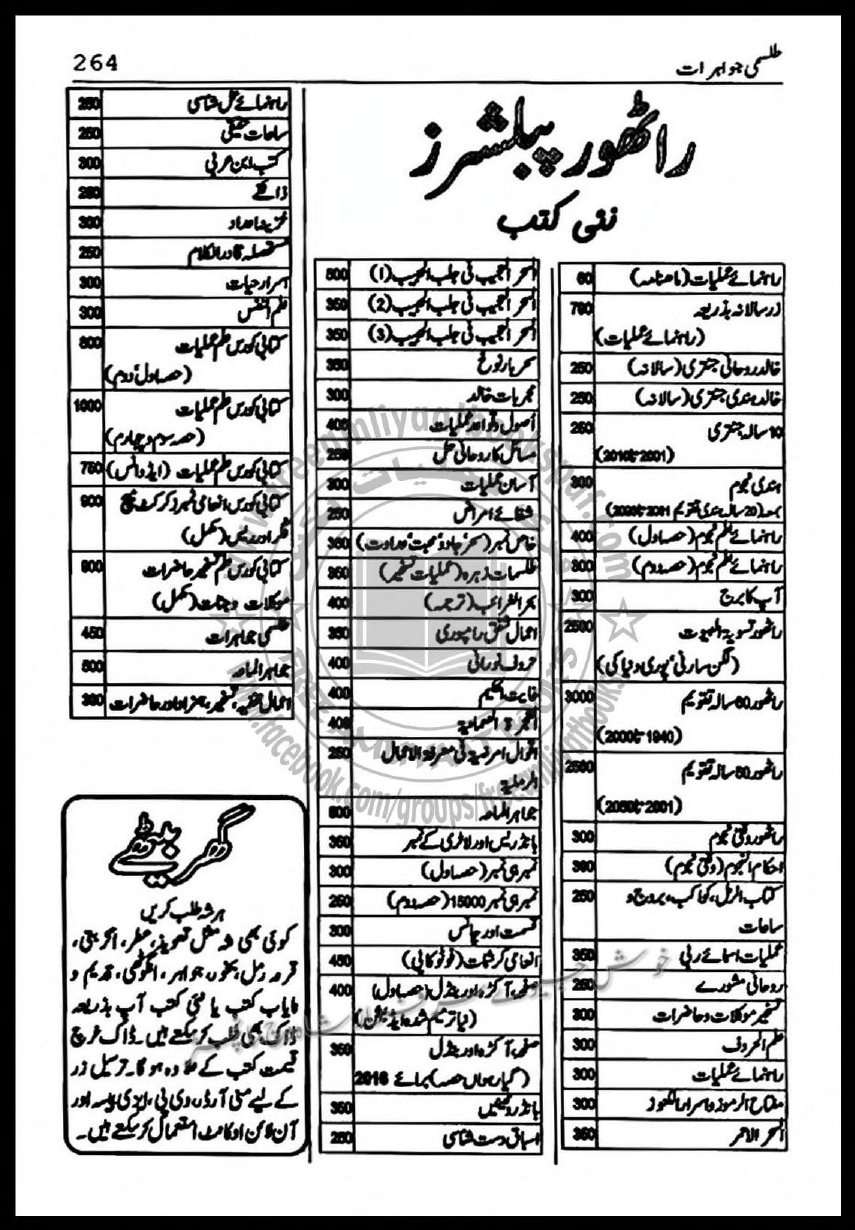 264
طلسمی جواہرات
راٹھور پبلشرز
نئی کتب
راہنمائے عملیات (ماہنامہ) 60
زرسالانہ بذریعہ 700
(راہنمائے عملیات)
خالد روحانی جنتری (سالانہ) 250
خالد ہندی جنتری (سالانہ) 250
10 سالہ جنتری 250
(2001تا2010)
ہندی نجوم 300
بمعہ (20 سالہ ہندی تقویم 2011تا
راہنمائے علم نجوم (حصہ اول) 400
راہنمائے علم نجوم (حصہ دوم) 300
آپ کا برج 300
راٹھور تسویۃ البیوت 2500
(لگن سارنی، پوری دنیا کی)
راٹھور 60 سالہ تقویم 3000
(1940تا2000)
راٹھور 50 سالہ تقویم 2500
(2001تا2050)
راٹھور وقتی نجوم 300
احکام النجوم (وقتی نجوم) 390
کتاب الرمل، کواکب، بروج و 250
ساعات
عملیات اسمائے ربی 350
روحانی مشورے 250
تسخیر موکلات و حاضرات 300
علم الحروف 300
راہنمائے عملیات 300
مفتاح الرموز و اسرار الکنوز 300
السحر الاحمر 350
السحر العجیب فی جلب الحبیب (1) 500
السحر العجیب فی جلب الحبیب (2) 350
السحر العجیب فی جلب الحبیب (3) 350
سحر بارنوخ 350
مجربات خالد 300
اصول و قواعد عملیات 400
مسائل کا روحانی حل 250
آسان عملیات 300
شفائے امراض 250
خاص نمبر (سحر، جادو، محبت، عداوت) 360
طلسمات زہرہ (عملیات تسخیر) 360
بحر الغرائب (ترجمہ) 400
اعمال شفق رامپوری 350
حروف نورانی 400
غایت الحکیم 400
400
اقوال المرضیہ فی معرفۃ الاعمال 250
الرملیہ
جواہر الماسہ 600
بانڈ ریس اور لاٹری کے نمبر 360
نمبر ہی نمبر (حصہ اول) 300
نمبر ہی نمبر 15000 (حصہ دوم) 250
قسمت اور چانس 300
انعامی کرشمات (فوٹو کاپی) 450
صفحہ، آکڑہ اور بنڈل (حصہ اول) 400
(نیا ترمیم شدہ ایڈیشن)
صفحہ، آکڑہ اور بنڈل 350
(گیارہواں حصہ) برائے 2016
350
اسباق دست شناسی 250
راہنمائے عمل شناسی 250
ساعات حقیقی 250
کتب ابن عربی 300
ذائقے 250
خزینہ اعداد 300
مستحصلہ قادر الکلام 250
اسرار حیات 300
علم النفس 300
کتابی کورس علم عملیات 800
(حصہ اول، دوم)
کتابی کورس علم عملیات 1000
(حصہ سوم و چہارم)
کتابی کورس علم عملیات (ایڈوانس) 750
کتابی کورس انعامی نمبرز کرکٹ میچ 900
فگر اور ریس (مکمل)
کتابی کورس علم تسخیر حاضرات 800
موکلات و جنات (مکمل)
طلسمی جواہرات 450
جواہر الماسہ 500
اعمال نقشیہ، تسخیر، ہمزاد اور حاضرات 300
گھر بیٹھے
ہر شہ طلب کریں
کوئی بھی شہ مثل تعویذ، عطر، اگربتی،
قرعہ رمل، بخور، جواہر، انگوٹھی، قدیم و
نایاب کتب یا نئی کتب آپ بذریعہ
ڈاک بھی طلب کر سکتے ہیں۔ ڈاک خرچ
قیمت کتب کے علاوہ ہو گا۔ ترسیل زر
کے لیے منی آرڈر، وی پی، ایزی پیسہ اور
آن لائن اوکاؤنٹ استعمال کر سکتے ہیں۔